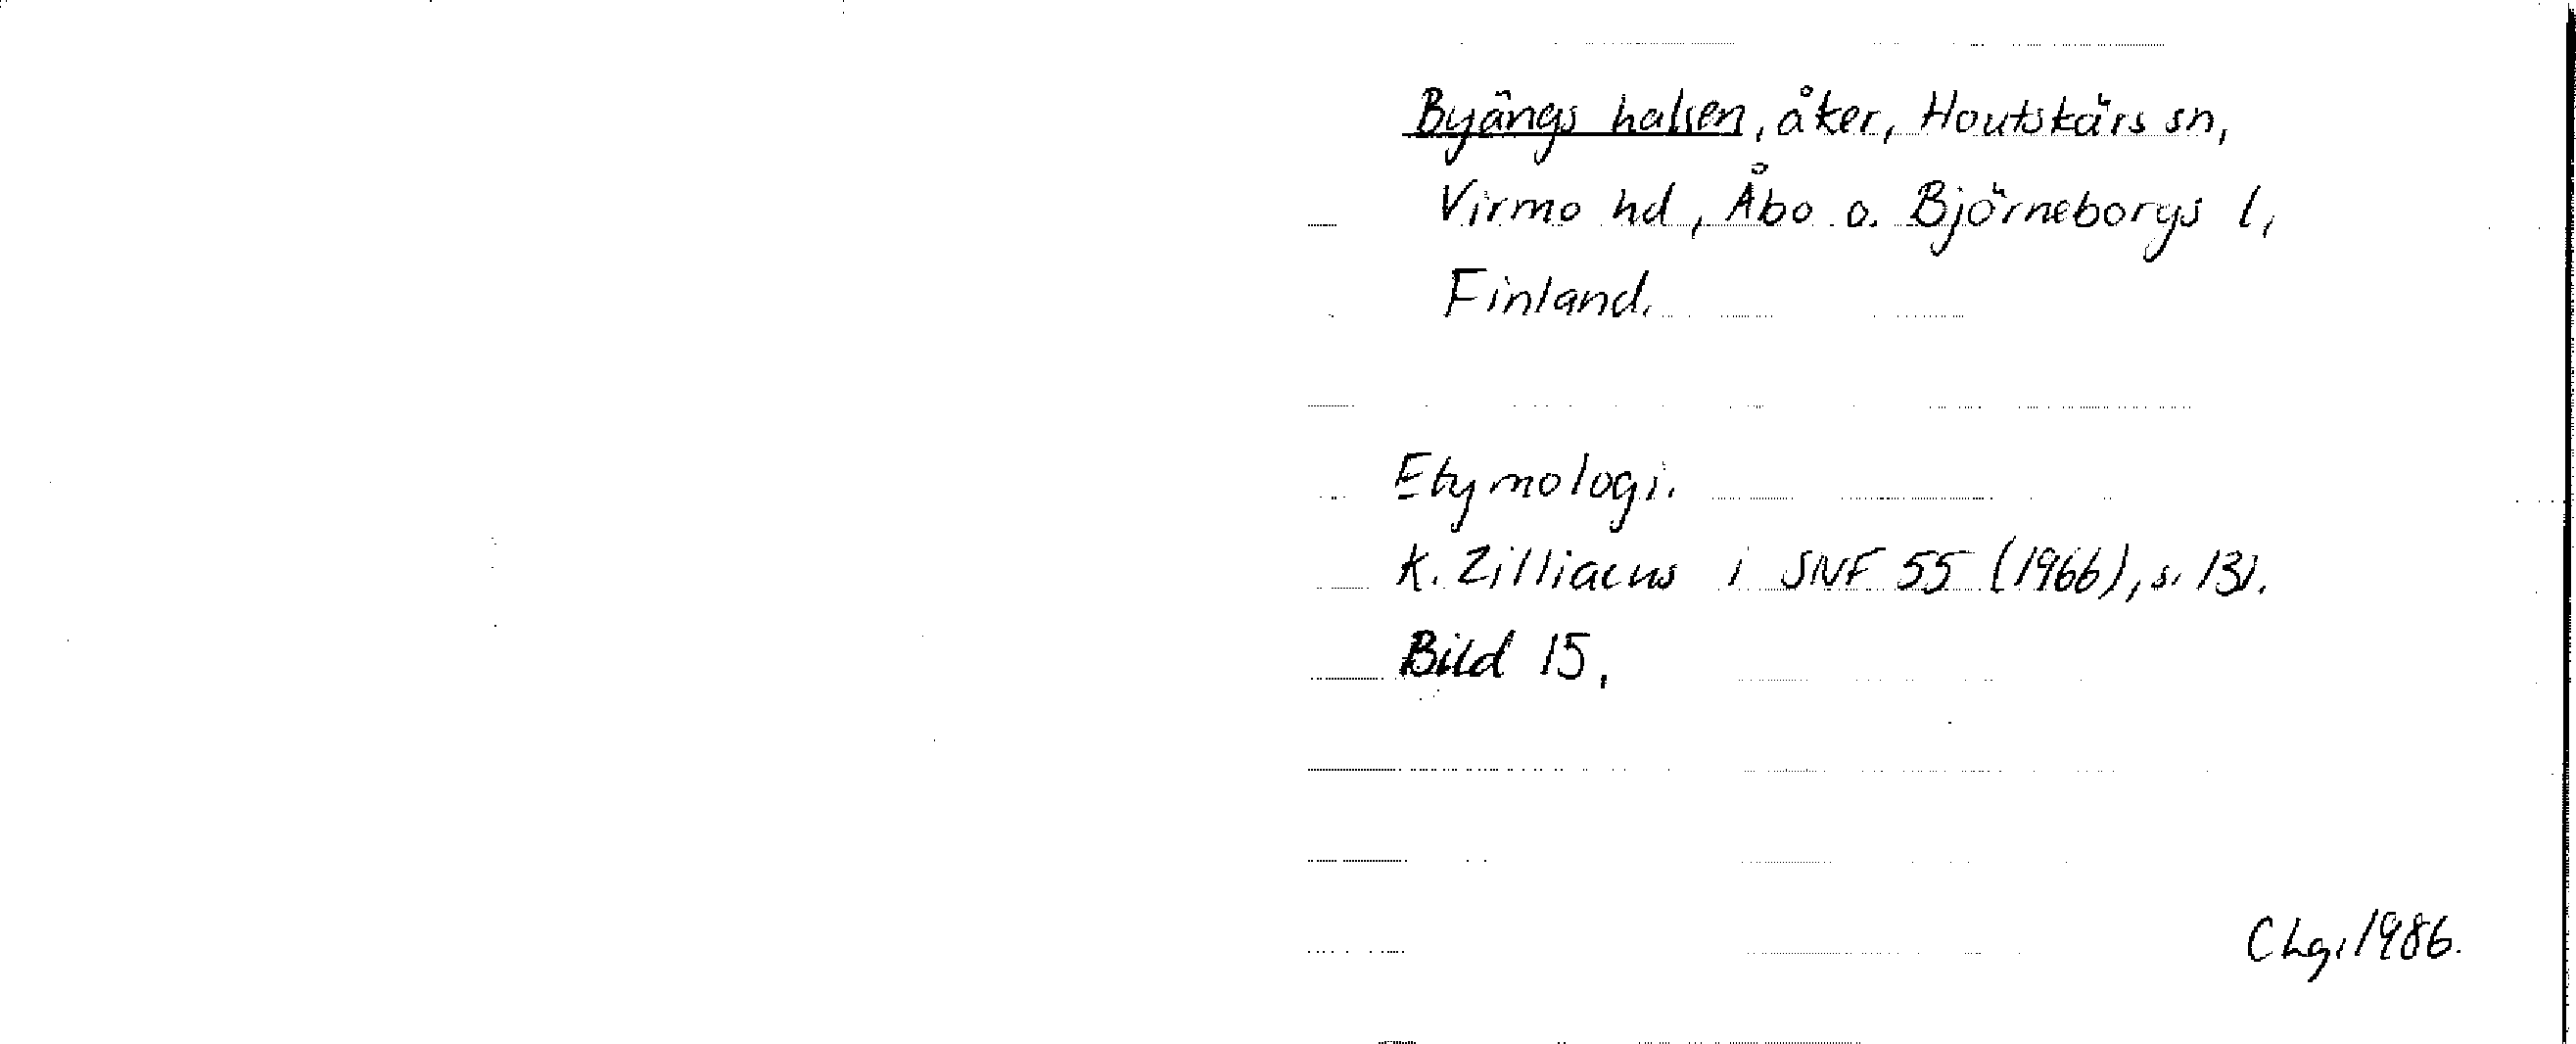 Byängs halsen, åker, Houtskärs sn,
Virmo hd, Åbo o. Björneborgs l,
Finland.
Etymologi.
K. Zilliacus i SNF 55 (1966), s. 131.
Bild 15.
Chg. 1986.